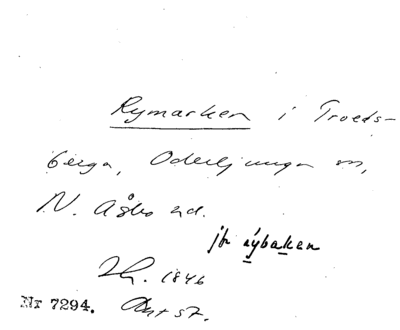 Rymarken i Troeds-
berga, Oderljunga sn,
N. Åsbo hd.
jfr rýbaken
1846
Nr 7294.